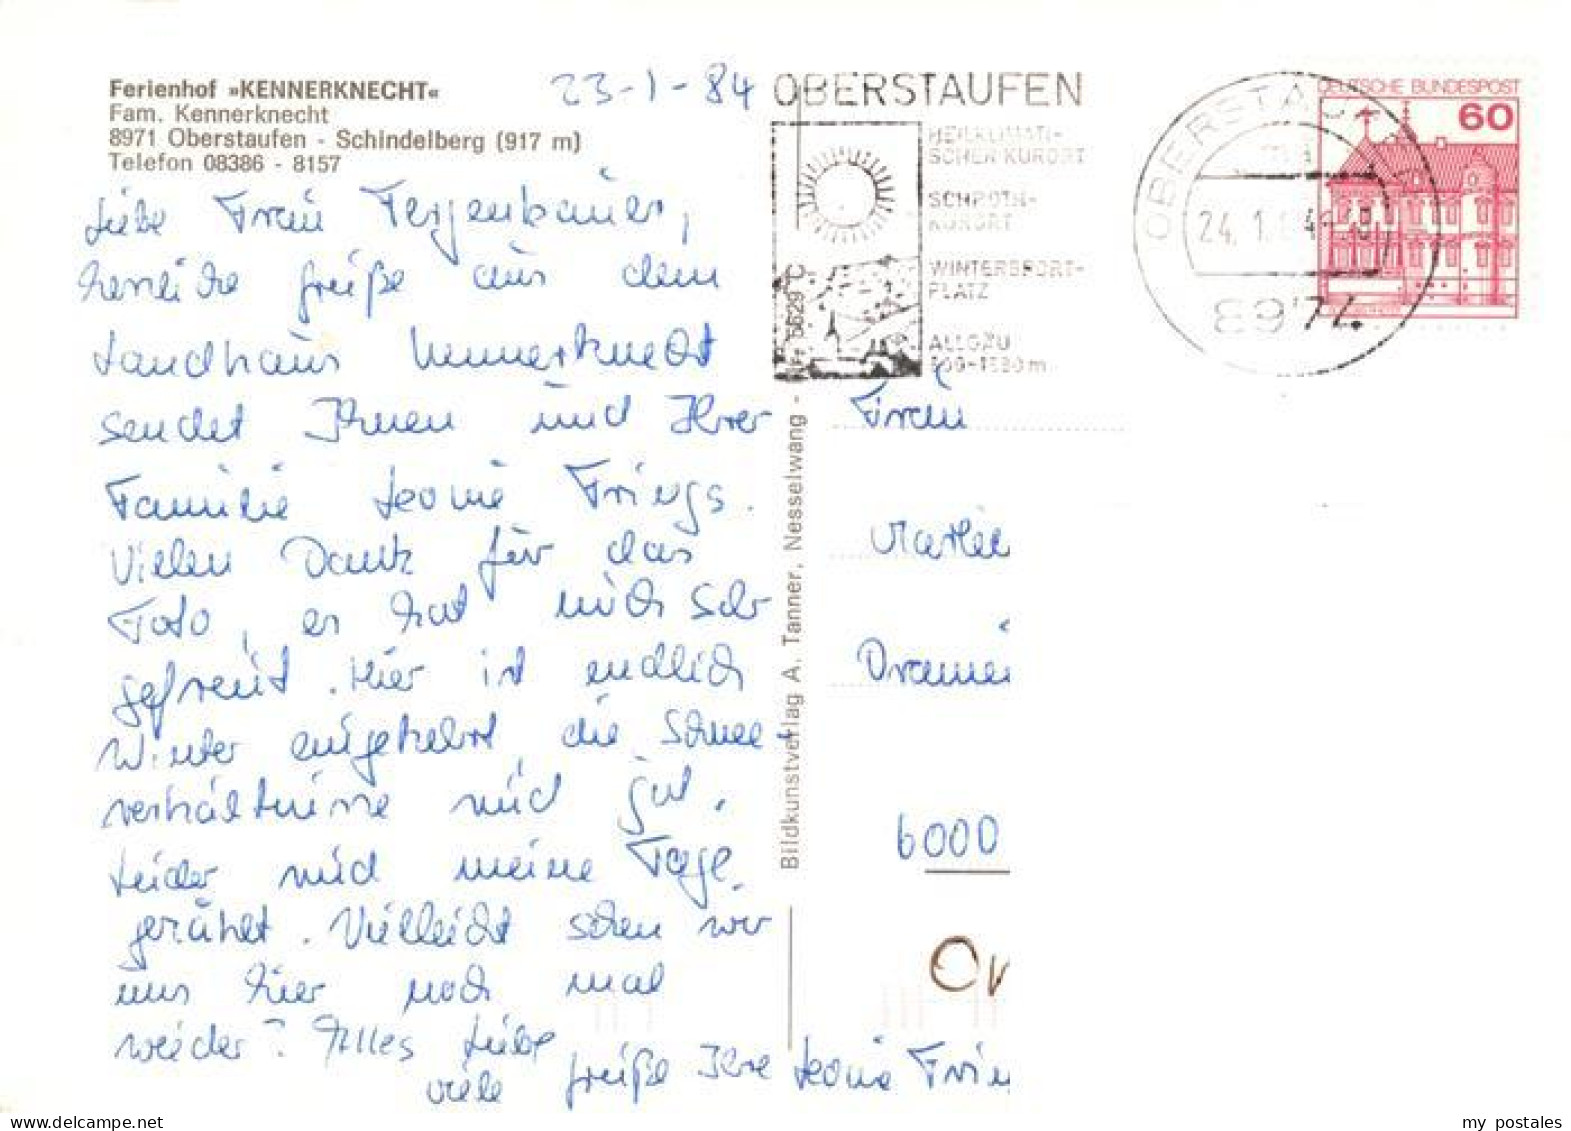 Ferienhof »KENNERKNECHT«
Fam. Kennerknecht
8971 Oberstaufen - Schindelberg (917 m)
Telefon 08386 - 8157
23-1-84
Liebe Frau Fergenbauer,
herzliche Grüße aus dem
Landhaus Kennerknecht
sendet Ihnen und Ihrer
Familie Leonie Frings.
Vielen Dank für das
Foto, es hat mich sehr
gefreut. Hier ist endlich
Winter eingekehrt, die Schnee-
verhältnisse sind gut.
Leider sind meine Tage
gezählt. Vielleicht sehen wir
uns hier noch mal
wieder? Alles Liebe
viele Grüße Ihre Leonie Frin
Bildkunstverlag A. Tanner, Nesselwang - Nr. 5629
OBERSTAUFEN
HEILKLIMATI-
SCHER KURORT
SCHROTH-
KURORT
WINTERSPORT-
PLATZ
ALLGÄU
OBERSTAUFEN
24. 1.
8974
DEUTSCHE BUNDESPOST
60
Frau
6000
my postales